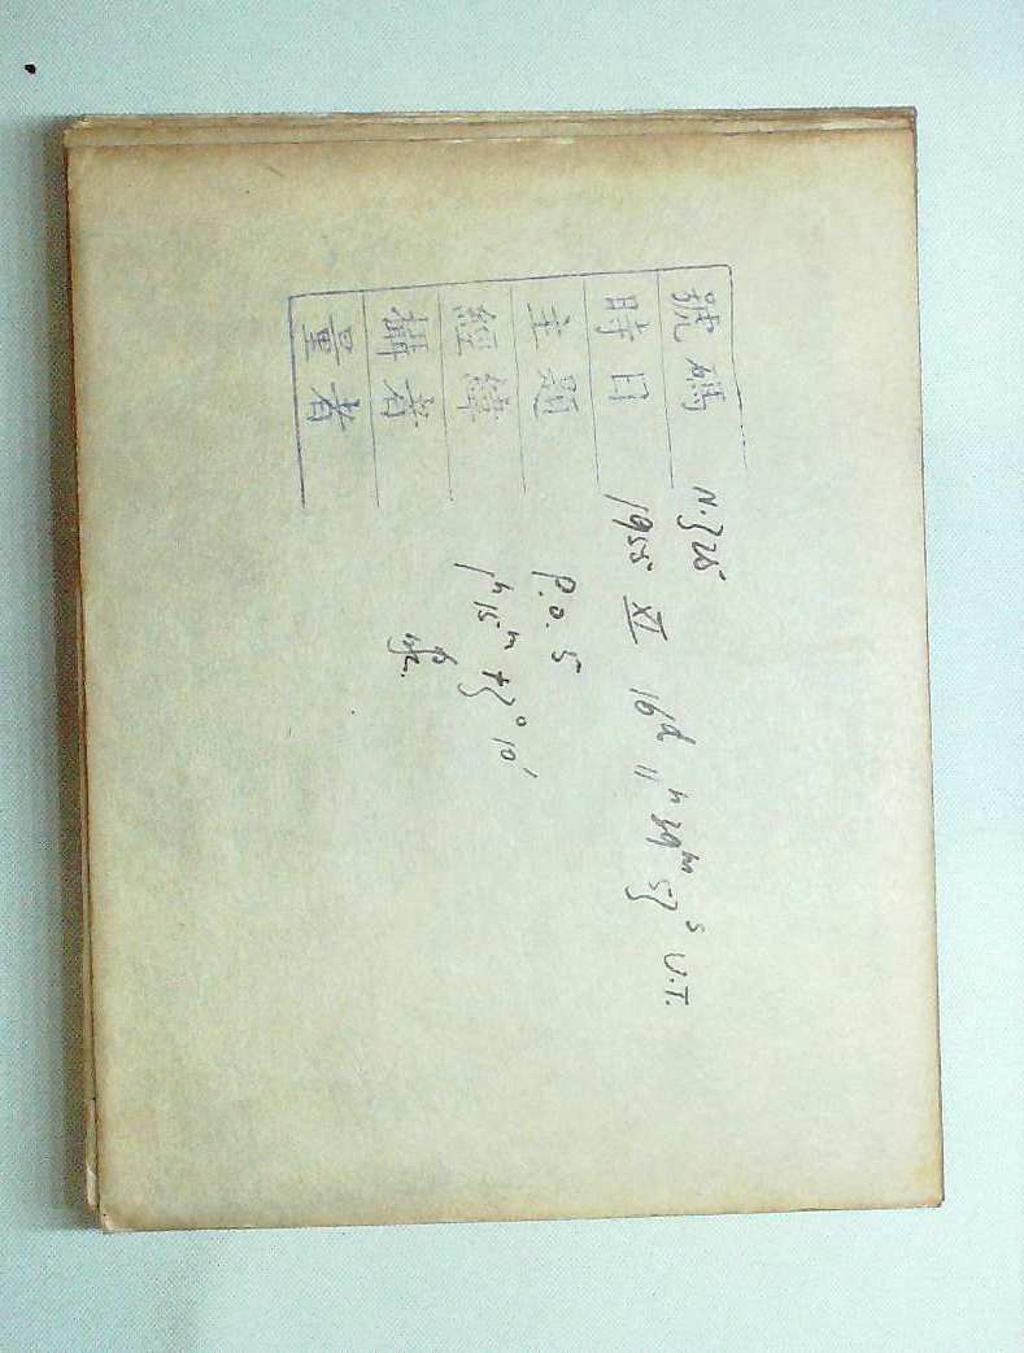 號碼 N.325
時日 1955 XI 16d 11h 39m 53s U.T.
主題 P.O. 5
經緯 1h 15m +3° 10'
攝者
量者